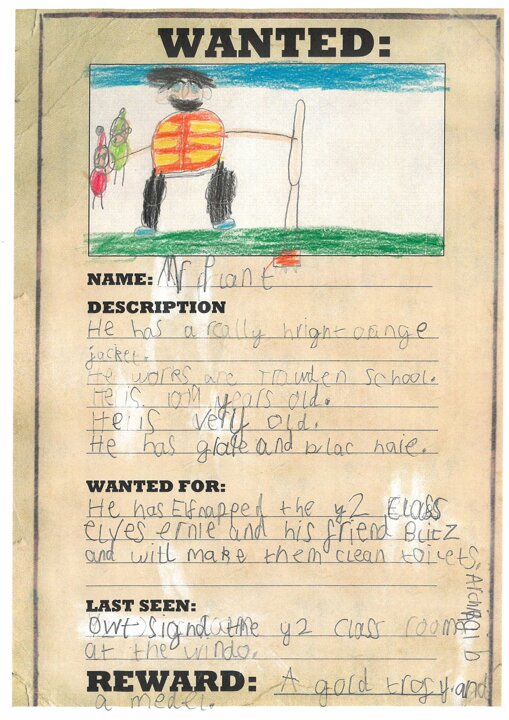 WANTED:
NAME: Mr Plant
DESCRIPTION
He has a really hright orange
jacket.
He works are Trowden School.
He is 1019 years old.
He is very old.
He has and blac haie.
WANTED FOR:
He has Elfnapped the y2 Class
elves ernie and his friend Blitz
and will make them clean toilets.
LAST SEEN:
Owt Signd the y2 class room
at the windo.
REWARD: A gold trofy and
a medel.
Archibald b